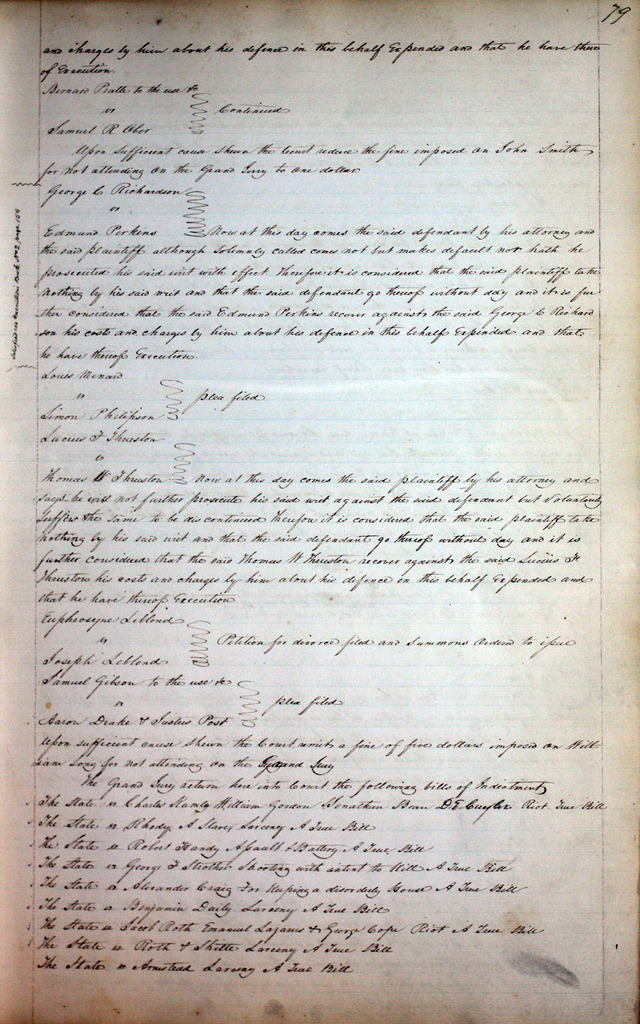 79
and charges by him about his defence in this behalf Expended and that he have there
of Execution
Bernard Pratte to the use &c
vs Continued
Samuel R Ober
Upon Sufficient cause shewn the Court reduce the fine imposed on John Smith
for not attending on the Grand Jury to one dollar
George C Richardson
vs
Edmund Perkins Now at this day comes the said defendant by his attorney and
the said plaintiff although Solemnly called comes not but makes default nor hath he
prosecuted his said writ with effect Therefore it is considered that the said plaintiff take
nothing by his said writ and that the said defendant go thereof without day and it is fur
ther considered that the said Edmund Perkins recover against the said George C Richard
son his costs and charges by him about his defence in this behalf Expended and that
he have thereof Execution
Louis Menard
vs plea filed
Simon Philipson
Lucius F Thruston
vs
Thomas W Thruston Now at this day comes the said plaintiff by his attorney and
says he will not further prosecute his said writ against the said defendant but Voluntarily
suffers the same to be discontinued Therefore it is considered that the said plaintiff take
nothing by his said writ and that the said defendant go thereof without day and it is
further considered that the said Thomas W Thruston recover against the said Lucius F
Thruston his costs and charges by him about his defence in this behalf Expended and
that he have thereof Execution
Euphrosyne Leblond
vs Petition for divorce filed and Summons Ordered to issue
Joseph Leblond
Samuel Gibson to the use &c
vs plea filed
Aaron Drake & Justus Post
Upon sufficient cause shewn the Court remits a fine of five dollars imposed on Will
iam Long for not attending on the Grand Jury
The Grand Jury return here into Court the following bills of Indictment
The State vs Charles Hamly William Gordon Jonathan Bean Riot True Bill
The State vs Rhody A Slave Larceny A True Bill
The State vs Robert Handy Assault & Battery A True Bill
The State vs George F Strother Shooting with intent to Kill A True Bill
The State vs Alexander Craig For Keeping a disorderly House A True Bill
The State vs Benjamin Daily Larceny A True Bill
The State vs Jacob Roth Emanuel Lazarus & George Cope Riot A True Bill
The State vs Roth & Larceny A True Bill
The State vs Armstead Larceny A True Bill